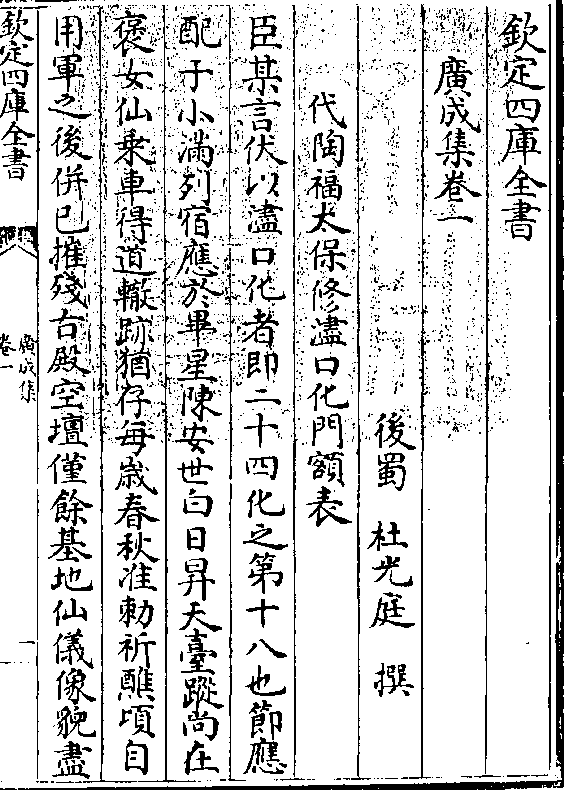 欽定四庫全書
廣成集卷一
後蜀 杜光庭 撰
代陶福太保修濜口化門額表
臣某言伏以濜口化者即二十四化之第十八也節應
配于小滿列宿應於畢星陳安世白日昇天臺蹤尚在
褒女仙乘車得道轍跡猶存每歳春秋准勅祈醮頃自
用軍之後併已摧殘古殿空壇僅餘基地仙儀像貌盡
欽定四庫全書
廣成集
卷一
一